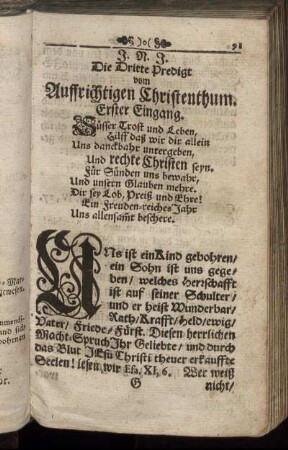 )o( 91
J. N. J.
Die Dritte Predigt
vom
Auffrichtigen Christenthum.
Erster Eingang.
Süsser Trost und Leben,
Hilff daß wir dir allein
Uns danckbahr untergeben,
Und rechte Christen seyn.
Für Sünden uns bewahr,
Und unsern Glauben mehre.
Dir sey Lob, Preiß und Ehre!
Ein Freuden-reiches-Jahr
Uns allensamt beschere.
UNs ist ein Kind gebohren/
ein Sohn ist uns gege-
ben/ welches Herrschafft
ist auf seiner Schulter/
und er heist Wunderbar/
Rath/Krafft/Held/ewig/
Vater/ Friede/ Fürst. Diesen herrlichen
Macht-Spruch Ihr Geliebte/ und durch
das Blut JEsu Christi theuer erkauffte
Seelen! lesen wir Es. XI, 6. Wer weiß
G nicht/